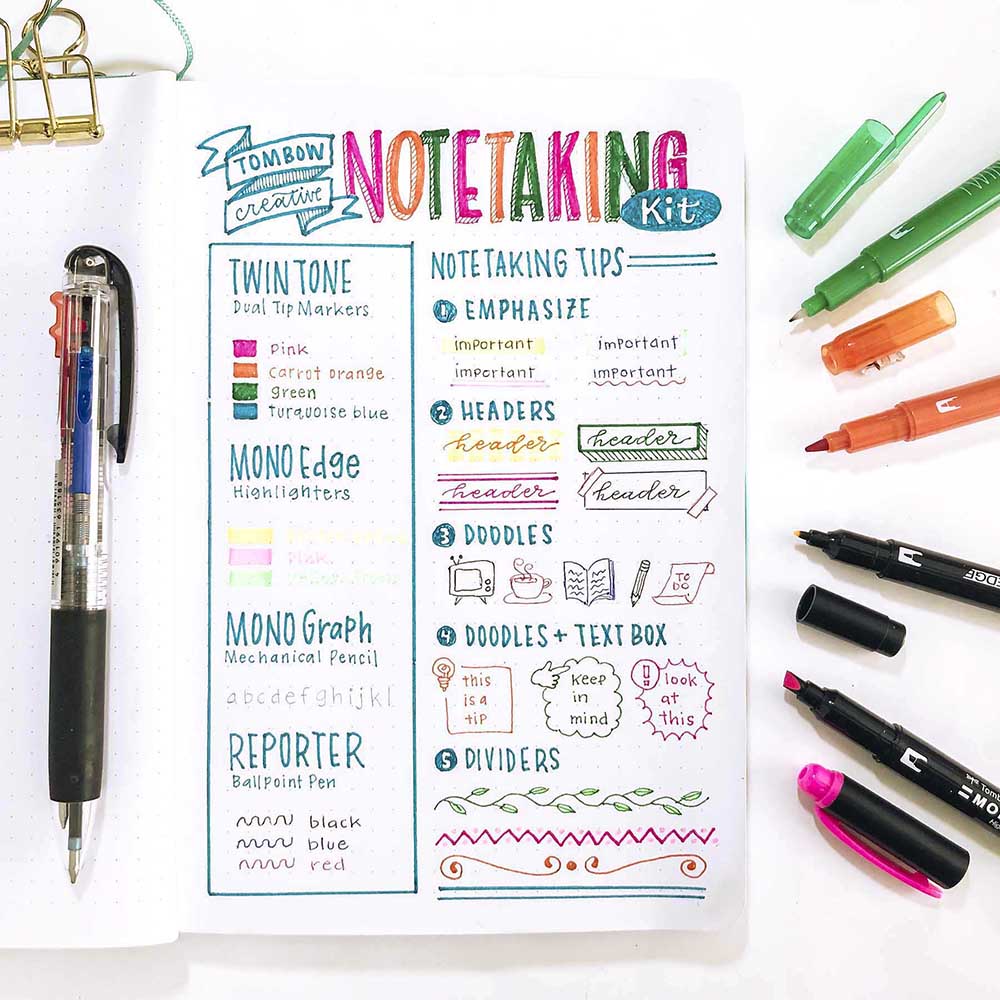 TOMBOW
creative
NOTETAKING
Kit
TWINTONE
Dual Tip Markers
Pink
Carrot orange
green
turquoise blue
MONO Edge
Highlighters
Pink
yellow green
MONO Graph
Mechanical Pencil
abcdefghijkl
REPORTER
Ballpoint Pen
black
blue
red
NOTETAKING TIPS
1 EMPHASIZE
important important
important important
2 HEADERS
header header
header header
3 DOODLES
TO
DO
4 DOODLES + TEXT BOX
this
is a
tip
keep
in
mind
! look
at
this
5 DIVIDERS
EDGE
Tombow
MONO